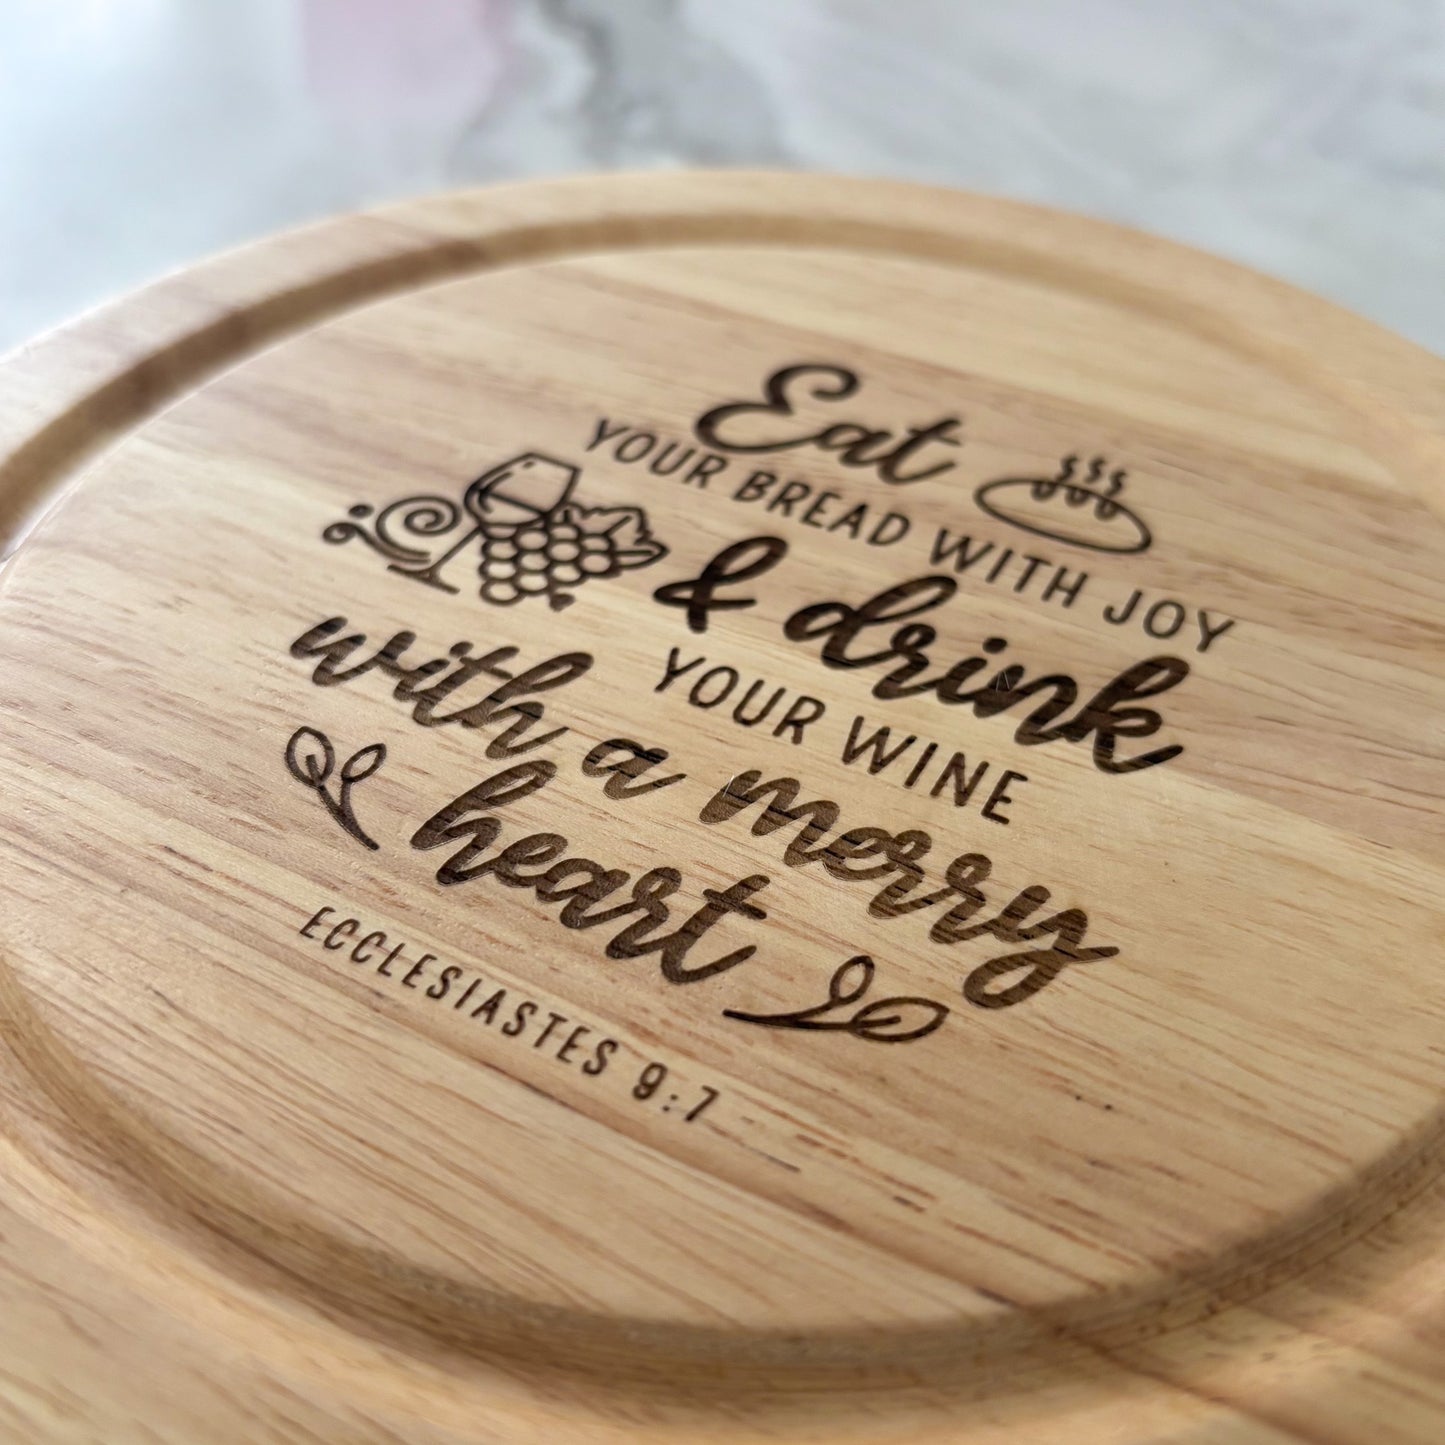 Eat
YOUR BREAD WITH JOY
& drink
YOUR WINE
with a merry
heart
ECCLESIASTES 9:7